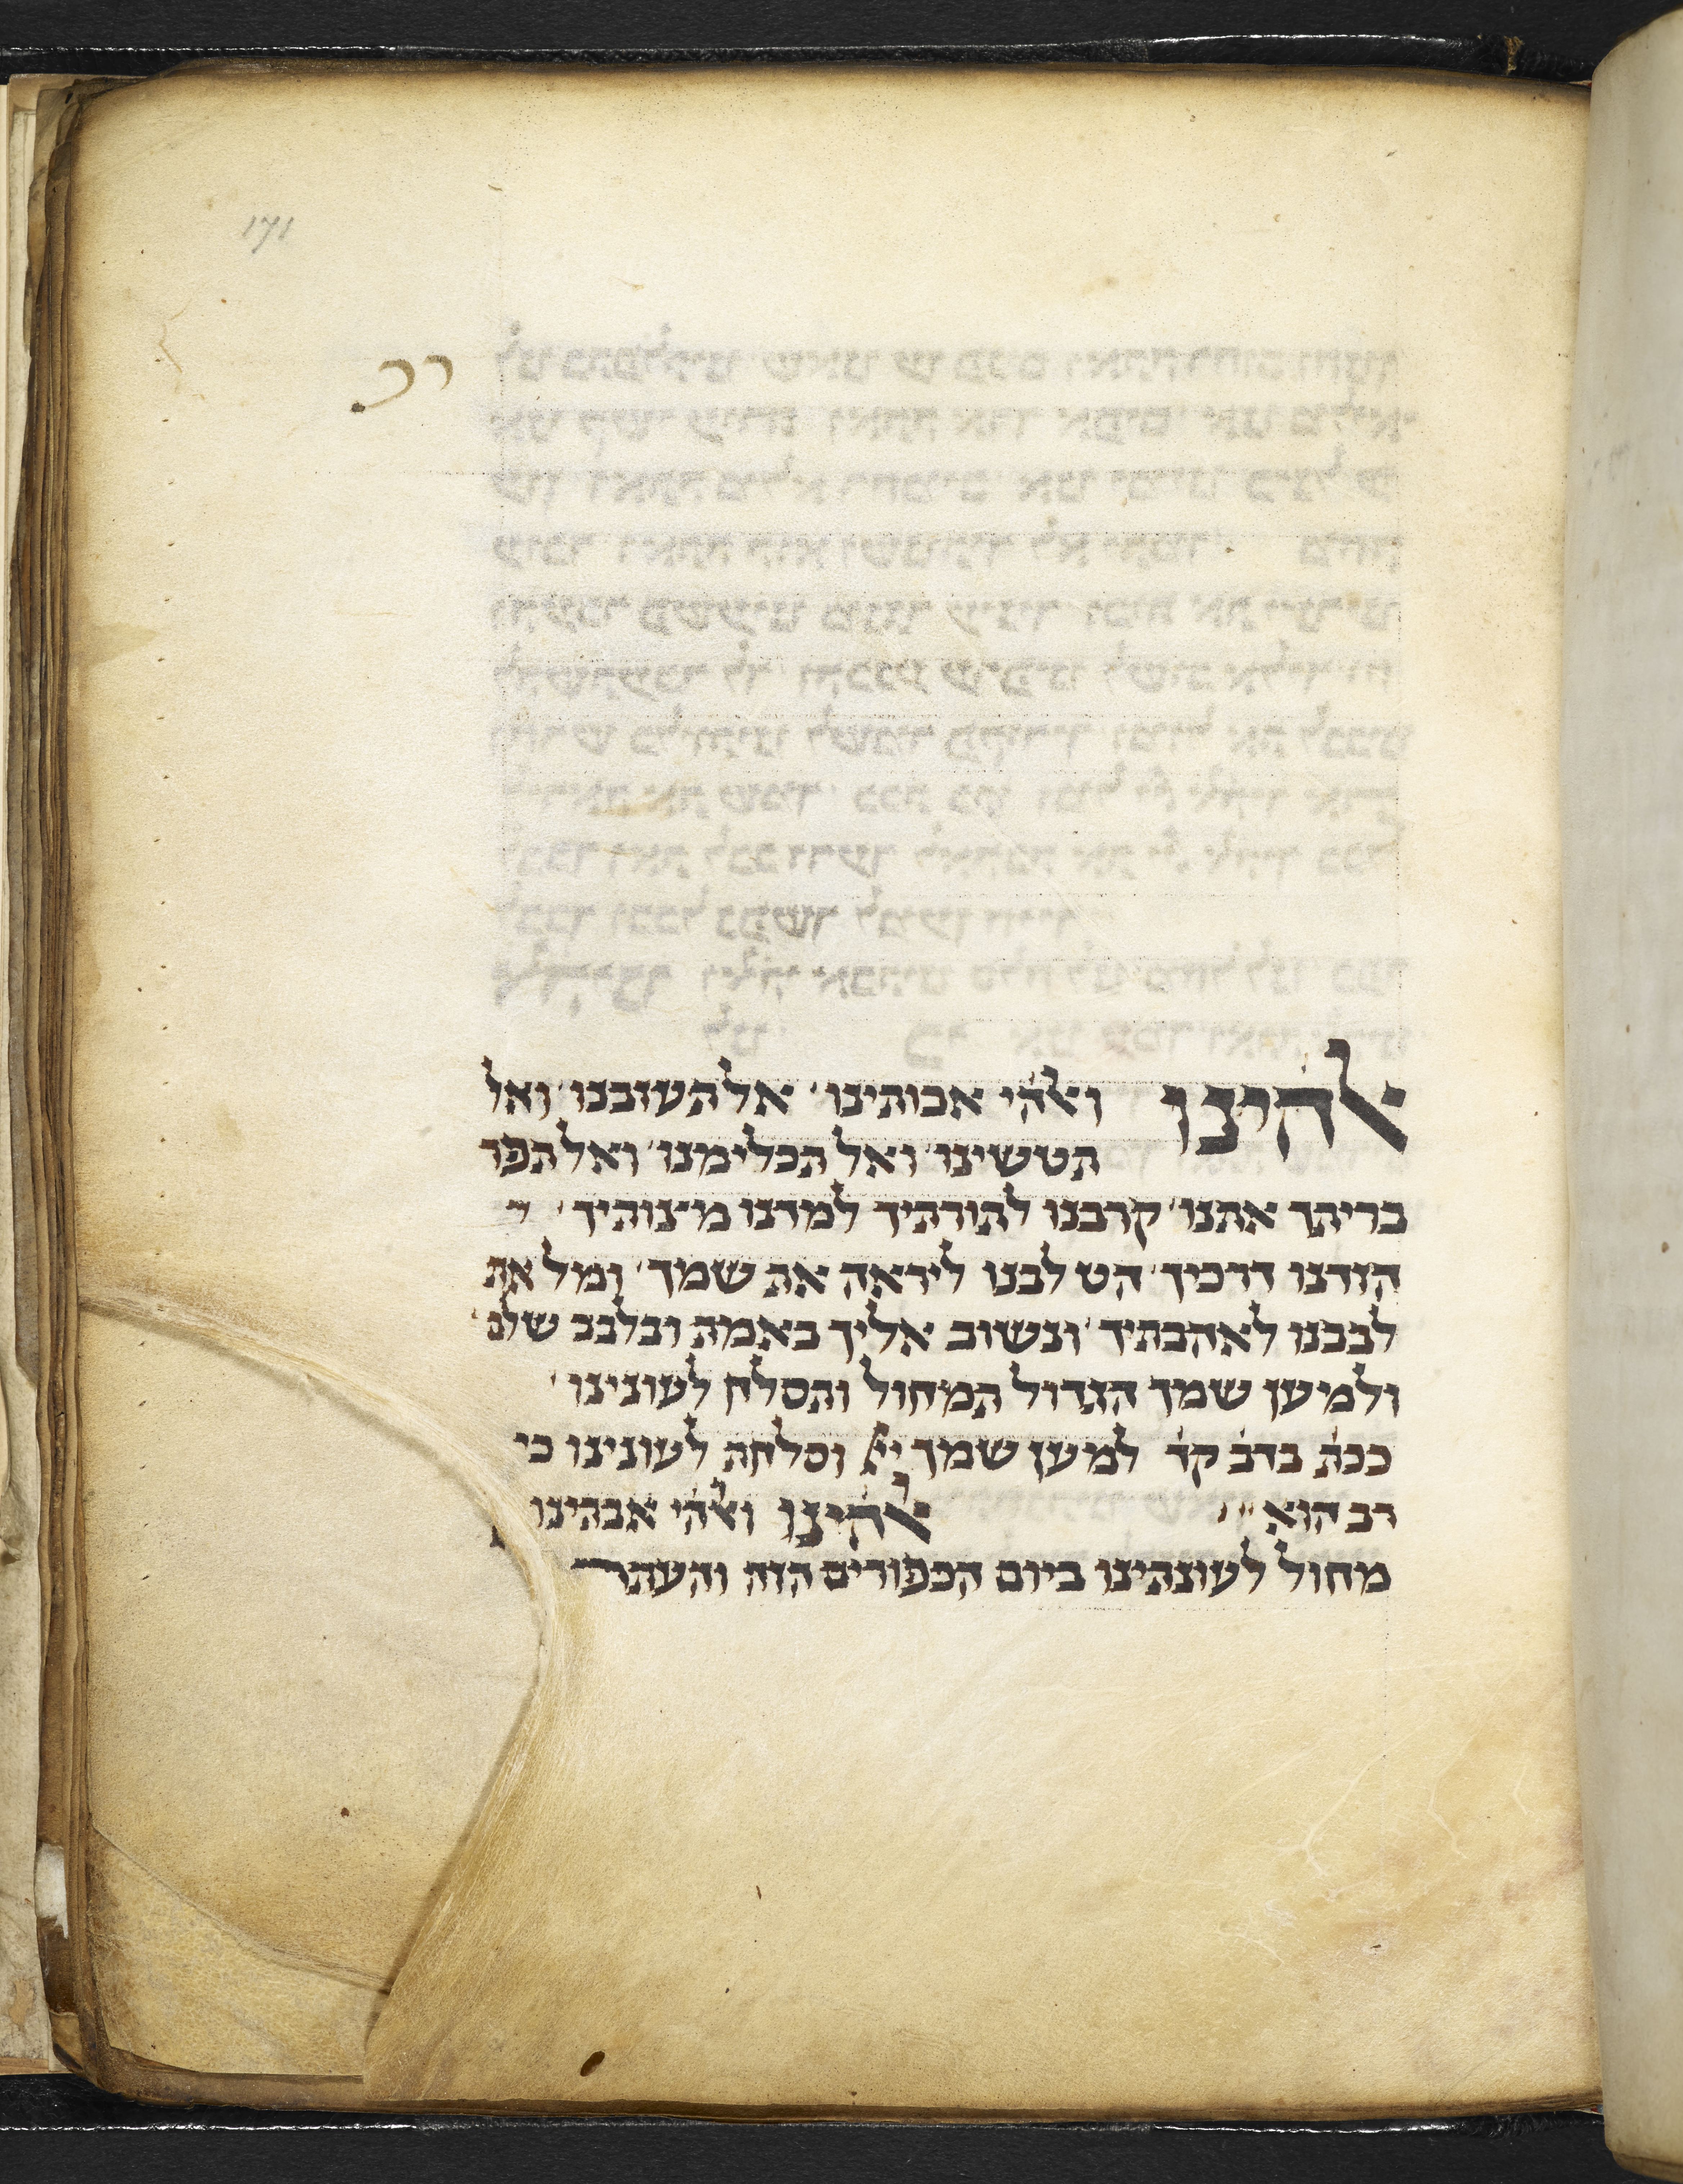 171
רכ
אלהינו ואלהי אבותינו אל תעזבנו ואל
תטשינו ואל תכלימנו ואל תפר
בריתך אתנו קרבנו לתורתיך למדנו מיצותיך
הורנו דרכיך הט לבנו ליראה את שמך ומל את
לבבנו לאהבתיך ונשוב אליך באמת ובלבב שלם
ולמיען שמך הגדול תמחול ותסלח לעונינו
ככת׳ בדב׳ קד׳ למען שמך יי׳ וסלחת לעונינו כי
רב הוא אלהינו ואלהי אבתינו
מחול לעונתינו ביום הכפורים הזה והעתר